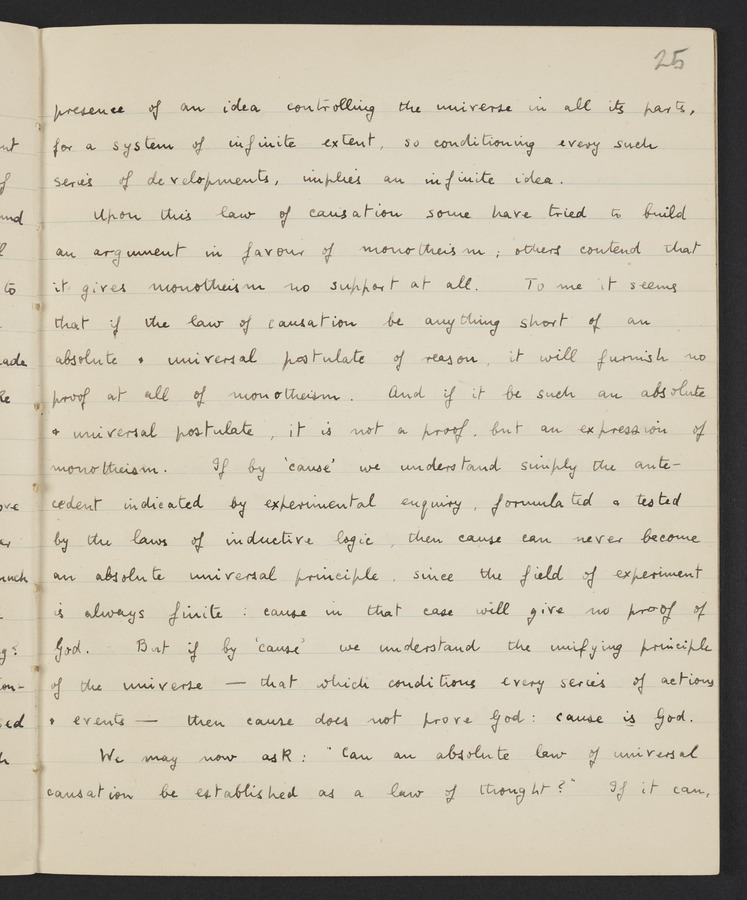 25
presence of an idea controlling the universe in all its parts,
for a system of infinite extent, so conditioning every such
series of developments, implies an infinite idea.
Upon this law of causation some have tried to build
an argument in favour of monotheism; others contend that
it gives monotheism no support at all. To me it seems
that if the law of causation be anything short of an
absolute & universal postulate of reason, it will furnish no
proof at all of monotheism. And if it be such an absolute
& universal postulate, it is not a proof, but an expression of
monotheism. If by 'cause' we understand simply the ante-
cedent indicated by experimental enquiry, formulated & tested
by the laws of inductive logic, then cause can never become
an absolute universal principle, since the field of experiment
is always finite: cause in that case will give no proof of
God. But if by 'cause' we understand the unifying principle
of the universe — that which conditions every series of actions
& events — then cause does not prove God: cause is God.
We may now ask: "Can an absolute law of universal
causation be established as a law of thought?" If it can,